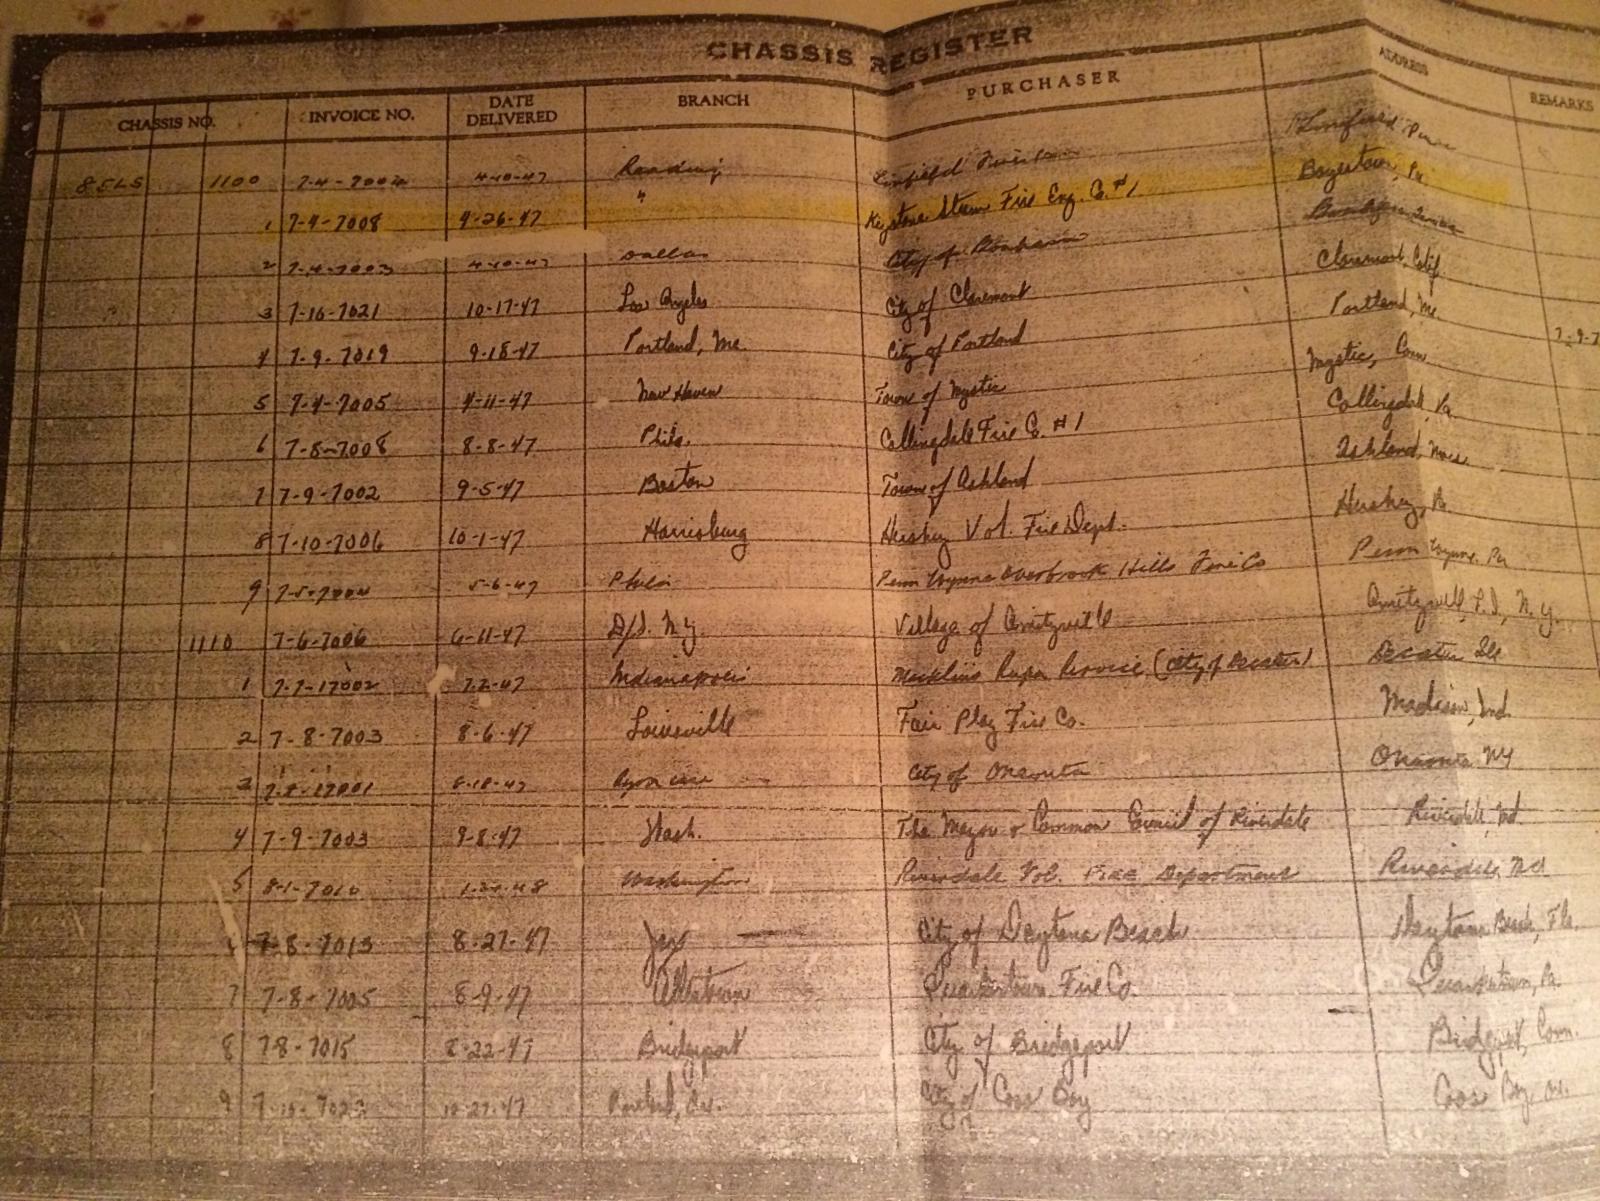 CHASSIS REGISTER
CHASSIS NO. INVOICE NO. DATE DELIVERED BRANCH PURCHASER ADDRESS REMARKS
85LS 1100 7-4-7002 4-10-47 Reading Linfield Linfield
1 7-4-7008 4-26-47 " Keystone Steam Fire Eng. Co. #1 Boyestown, Pa
2 7-4-7003 4-10-47 Dallas City of Bonham
3 7-16-7021 10-17-47 Los Angeles City of Claremont Claremont, Calif
4 7-9-7019 9-18-47 Portland, Me City of Portland Portland, Me 7-9-7
5 7-4-7005 4-11-47 New Haven Town of Mystic Mystic, Conn
6 7-8-7008 8-8-47 Phila. Collingdale Fire Co. #1 Collingdale, Pa.
7 7-9-7002 9-5-47 Boston Town of Ashland Ashland, Mass
8 7-10-7006 10-1-47 Harrisburg Hershey Vol. Fire Dept. Hershey, Pa
9 5-6-47 Phila Penn Wynne Overbrook Hills Fire Co Penn Wynne. Pa
1110 7-6-7006 6-11-47 N.Y. Village of Amityville Amityville, L.I., N.Y.
1 7-7-17002 7-2-47 Indianapolis Service (City of Decatur) Decatur Ill
2 7-8-7003 8-6-47 Louisville Fair Play Fire Co. Madison, Ind.
3 6-18-47 Syracuse City of Oneonta Oneonta NY
4 7-9-7003 9-8-47 Wash. The Mayor & Common Council of Riverdale Riverdale, Md
5 8-1-7010 48 Washington Riverdale Vol. Fire Department Riverdale, Md
7-8-7013 8-27-47 Jax City of Daytona Beach Daytona Beach, Fla.
7 7-8-7005 8-9-47 Allentown Quakertown Fire Co. Quakertown, Pa.
8 7-8-7015 8-22-47 Bridgeport City of Bridgeport Bridgeport, Conn.
9 10-27-47 Portland, Or. City of Coos Bay Coos Bay, Or.